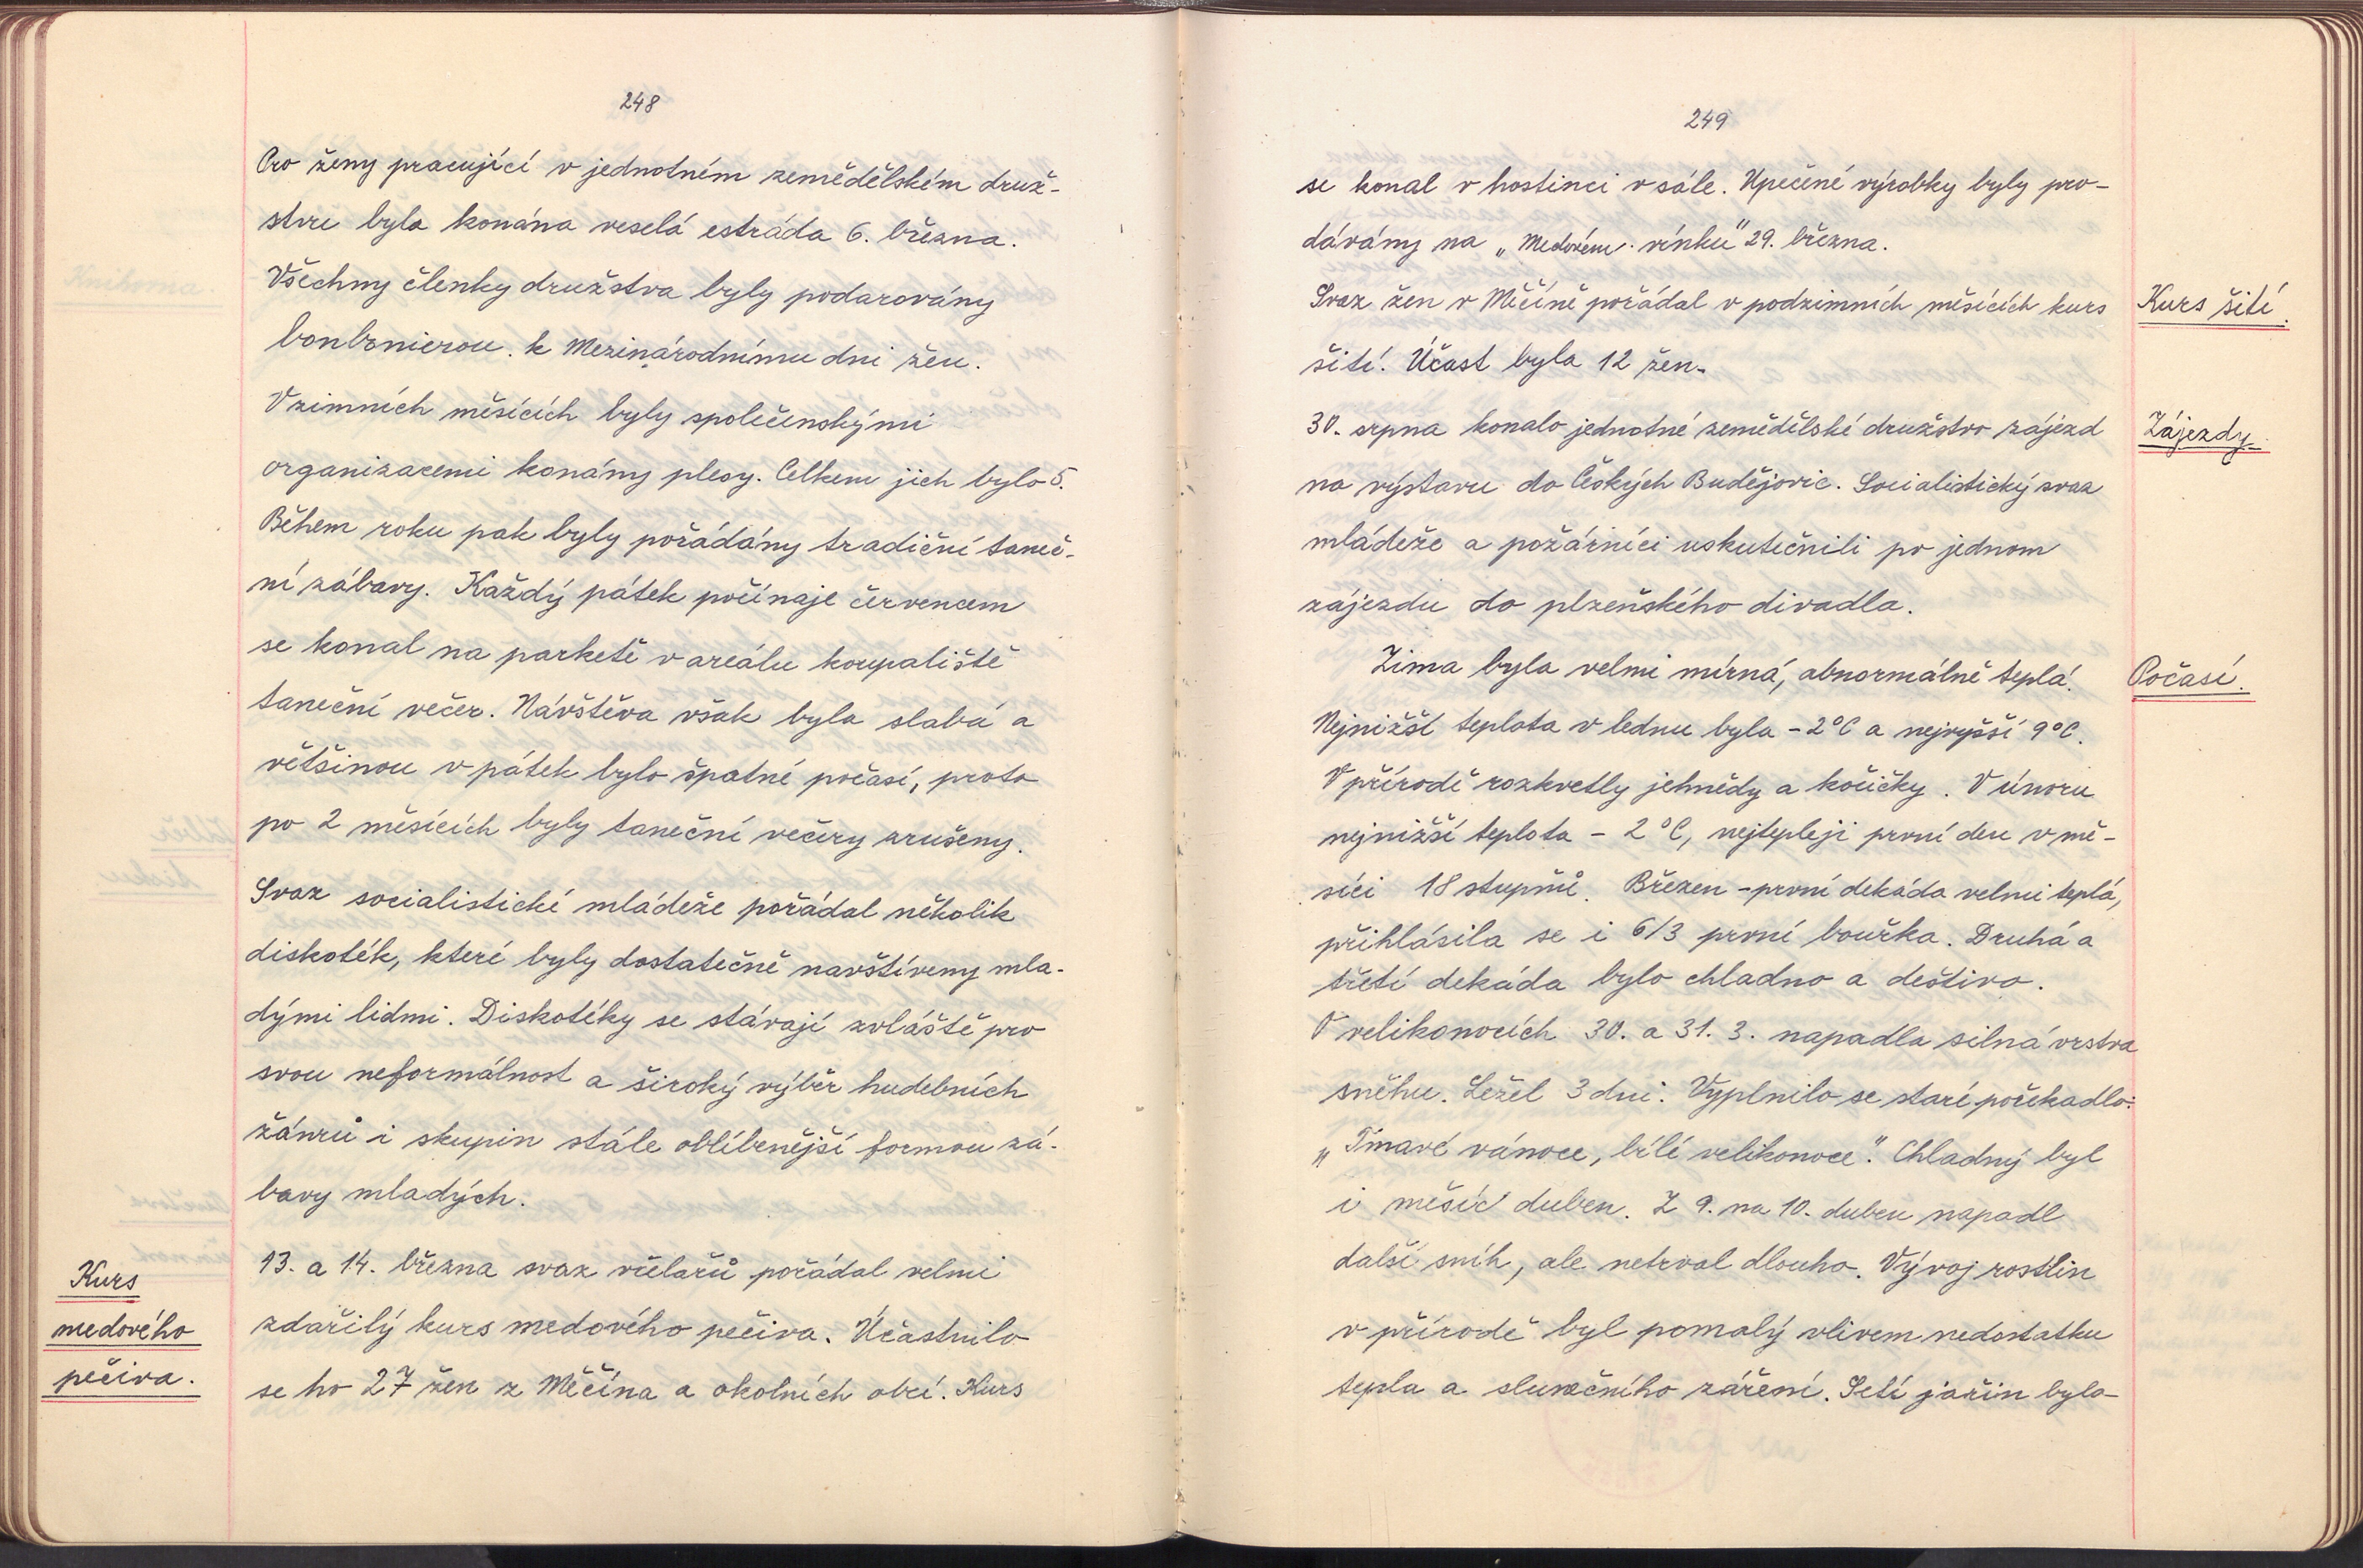 248
Pro ženy pracující v jednotném zemědělském druž-
stvu byla konána veselá estráda 6. března.
Všechny členky družstva byly podarovány
bonbonierou. k Mezinárodnímu dni žen.
V zimních měsících byly společenskými
organizacemi konány plesy. Celkem jich bylo 5.
Během roku pak byly pořádány tradiční taneč-
ní zábavy. Každý pátek počínaje červencem
se konal na parketě v areálu koupaliště
taneční večer. Návštěva však byla slabá a
většinou v pátek bylo špatné počasí, proto
po 2 měsících byly taneční večery zrušeny.
Svaz socialistické mládeže pořádal několik
diskoték, které byly dostatečně navštíveny mla-
dými lidmi. Diskotéky se stávají zvláště pro
svou neformálnost a široký výběr hudebních
žánrů i skupin stále oblíbenější formou zá-
bavy mladých.
Kurs
medového
pečiva.
13. a 14. března svaz včelařů pořádal velmi
zdařilý kurs medového pečiva. Účastnilo
se ho 27 žen z Měčína a okolních obcí. Kurs
249
se konal v hostinci v sále. Upečené výrobky byly pro-
dávány na „Medovém vínku" 29. března.
Svaz žen v Měčíně pořádal v podzimních měsících kurs
Kurs šití.
šití. Účast byla 12 žen.
30. srpna konalo jednotné zemědělské družstvo zájezd
Zájezdy.
na výstavu do Českých Budějovic. Socialistický svaz
mládeže a požárníci uskutečnili po jednom
zájezdu do plzeňského divadla.
Zima byla velmi mírná, abnormálně teplá.
Počasí.
Nejnižší teplota v lednu byla -2°C a nejvyšší 9°C.
V přírodě rozkvetly jehnědy a kočičky. V únoru
nejnižší teplota - 2°C, nejtepleji první den v mě-
síci 18 stupňů. Březen - první dekáda velmi teplá,
přihlásila se i 6/3 první bouřka. Druhá a
třetí dekáda bylo chladno a deštivo.
O velikonocích 30. a 31. 3. napadla silná vrstva
sněhu. Ležel 3 dni. Vyplnilo se staré pořekadlo:
„Tmavé vánoce, bílé velikonoce". Chladný byl
i měsíc duben. Z 9. na 10. duben napadl
další sníh, ale netrval dlouho. Vývoj rostlin
v přírodě byl pomalý vlivem nedostatku
tepla a slunečního záření. Setí jařin bylo